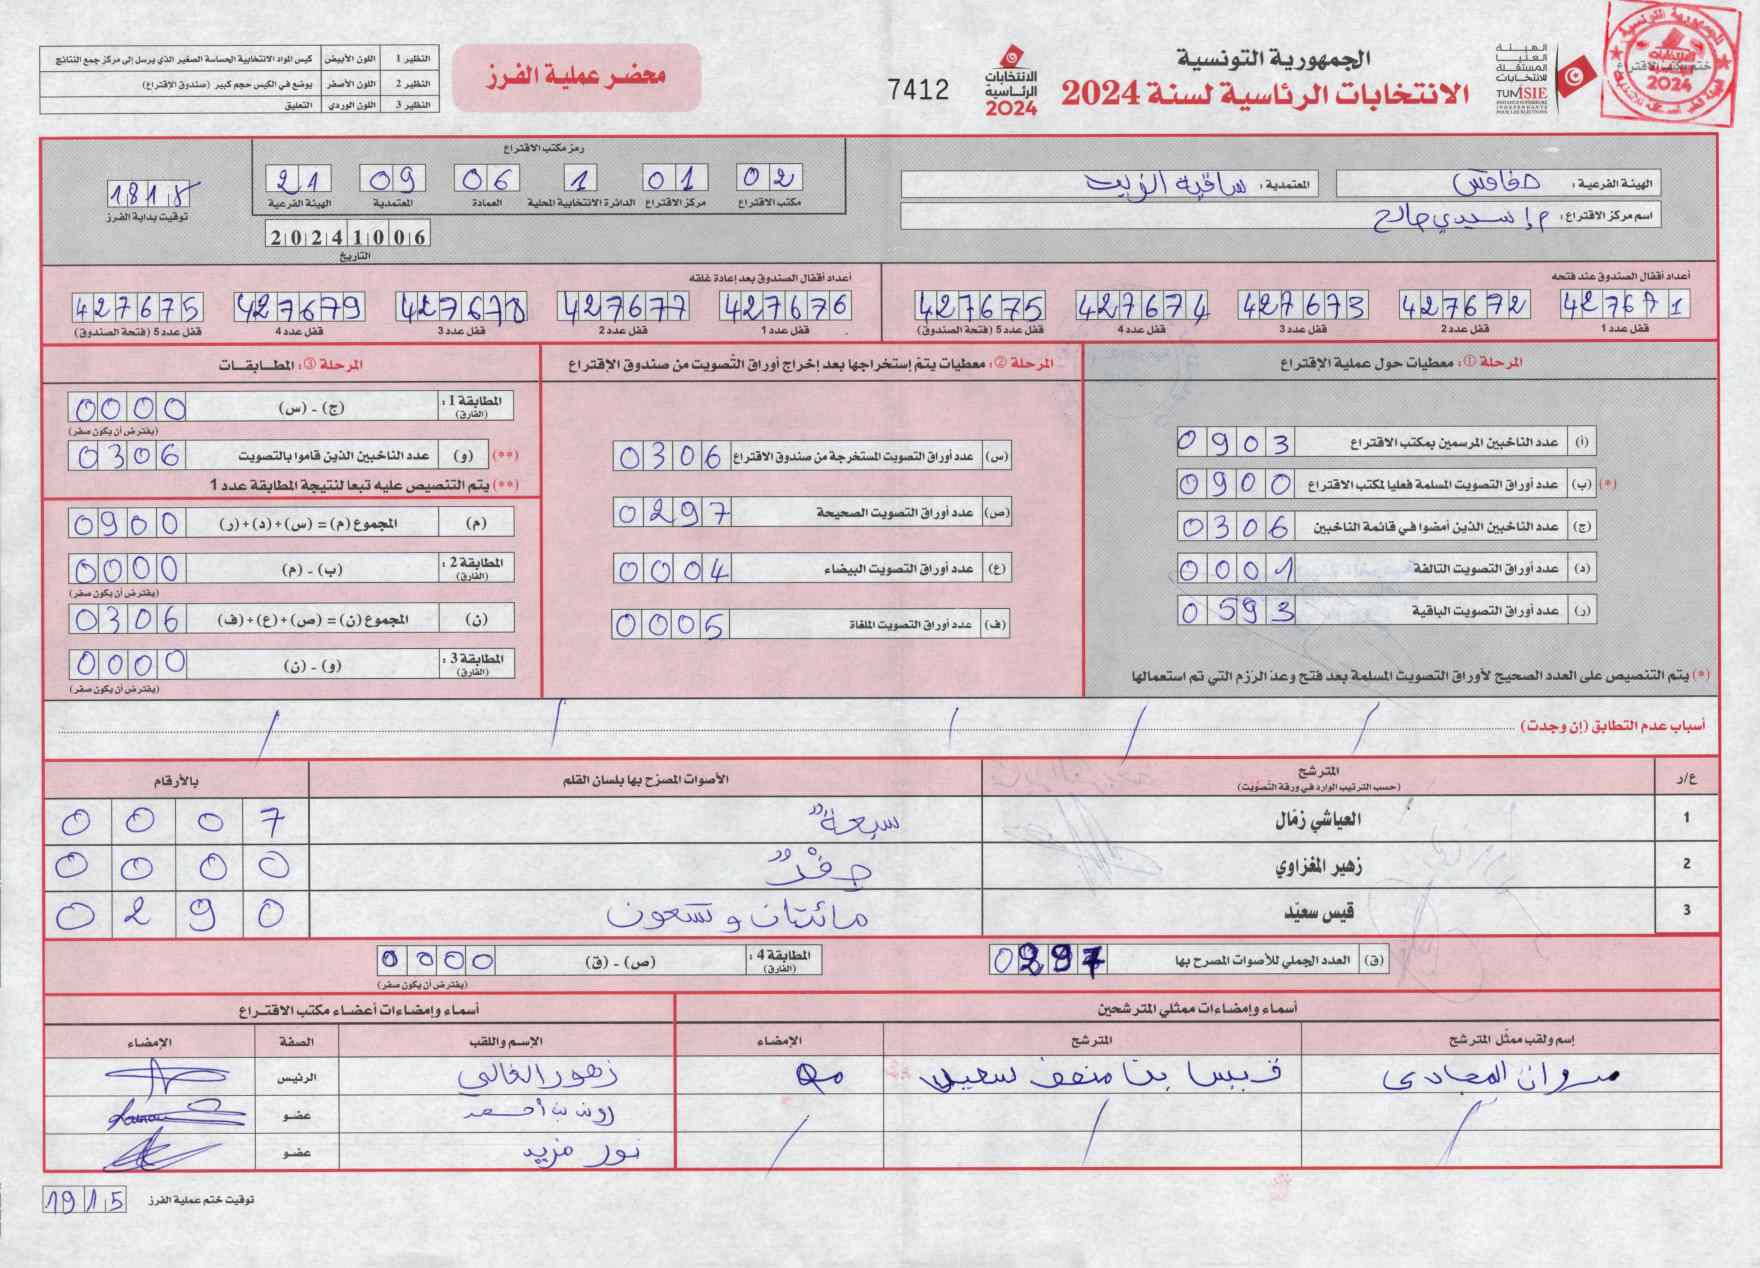 الجمهورية التونسية
الانتخابات الرئاسية لسنة 2024
الهيئة العليا المستقلة للانتخابات
TUNISIE
الانتخابات الرئاسية 2024
7412
محضر عملية الفرز
النظير 1 اللون الأبيض كيس المواد الانتخابية الحساسة الصغير الذي يرسل إلى مركز جمع النتائج
النظير 2 اللون الأصفر يوضع في الكيس حجم كبير (صندوق الإقتراع)
النظير 3 اللون الوردي التعليق
ختم مكتب الاقتراع
الهيئة الفرعية: صفاقس
المعتمدية: ساقية الزيت
اسم مركز الاقتراع: م إ سيدي صالح
رمز مكتب الاقتراع
02 01 1 06 09 21
مكتب الاقتراع مركز الاقتراع الدائرة الانتخابية المحلية العمادة المعتمدية الهيئة الفرعية
20241006
التاريخ
توقيت بداية الفرز
أعداد أقفال الصندوق عند فتحه
427671 427672 427673 427674 427675
قفل عدد 1 قفل عدد 2 قفل عدد 3 قفل عدد 4 قفل عدد 5 (فتحة الصندوق)
أعداد أقفال الصندوق بعد إعادة غلقه
427676 427677 427678 427679 427675
قفل عدد 1 قفل عدد 2 قفل عدد 3 قفل عدد 4 قفل عدد 5 (فتحة الصندوق)
المرحلة ①: معطيات حول عملية الإقتراع
(أ) عدد الناخبين المرسمين بمكتب الاقتراع 0903
(*) (ب) عدد أوراق التصويت المسلمة فعليا لمكتب الاقتراع 0900
(ج) عدد الناخبين الذين أمضوا في قائمة الناخبين 0306
(د) عدد أوراق التصويت التالفة 0001
(ر) عدد أوراق التصويت الباقية 0593
(*) يتم التنصيص على العدد الصحيح لأوراق التصويت المسلمة بعد فتح وعدّ الرزم التي تم استعمالها
المرحلة ②: معطيات يتم إستخراجها بعد إخراج أوراق التصويت من صندوق الإقتراع
(س) عدد أوراق التصويت المستخرجة من صندوق الاقتراع 0306
(ص) عدد أوراق التصويت الصحيحة 0297
(ع) عدد أوراق التصويت البيضاء 0004
(ف) عدد أوراق التصويت الملغاة 0005
المرحلة ③: المطابقات
المطابقة 1: (الفارق) (ج) - (س) 0000
(يفترض أن يكون صفر)
(**) (و) عدد الناخبين الذين قاموا بالتصويت 0306
(**) يتم التنصيص عليه تبعا لنتيجة المطابقة عدد 1
(م) المجموع (م) = (س)+(د)+(ر) 0900
المطابقة 2: (الفارق) (ب) - (م) 0000
(يفترض أن يكون صفر)
(ن) المجموع (ن) = (ص)+(ع)+(ف) 0306
المطابقة 3: (الفارق) (و) - (ن) 0000
(يفترض أن يكون صفر)
أسباب عدم التطابق (إن وجدت) / / / / /
ع/ر المترشح (حسب الترتيب الوارد في ورقة التصويت) الأصوات المصرّح بها بلسان القلم بالأرقام
1 العياشي زمّال سبعة 0007
2 زهير المغزاوي صفر 0000
3 قيس سعيّد مائتان وتسعون 0290
(ق) العدد الجملي للأصوات المصرح بها 0297
المطابقة 4: (الفارق) (ص) - (ق) 0000
(يفترض أن يكون صفر)
أسماء وإمضاءات ممثلي المترشحين
إسم ولقب ممثّل المترشح المترشح الإمضاء
/ / /
أسماء وإمضاءات أعضاء مكتب الاقتراع
الإسم واللقب الصفة الإمضاء
الرئيس
عضو
نور مزيد عضو
توقيت ختم عملية الفرز 1915